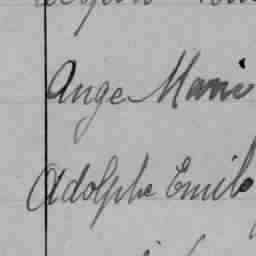 Ange Marie
Adolphe Emile